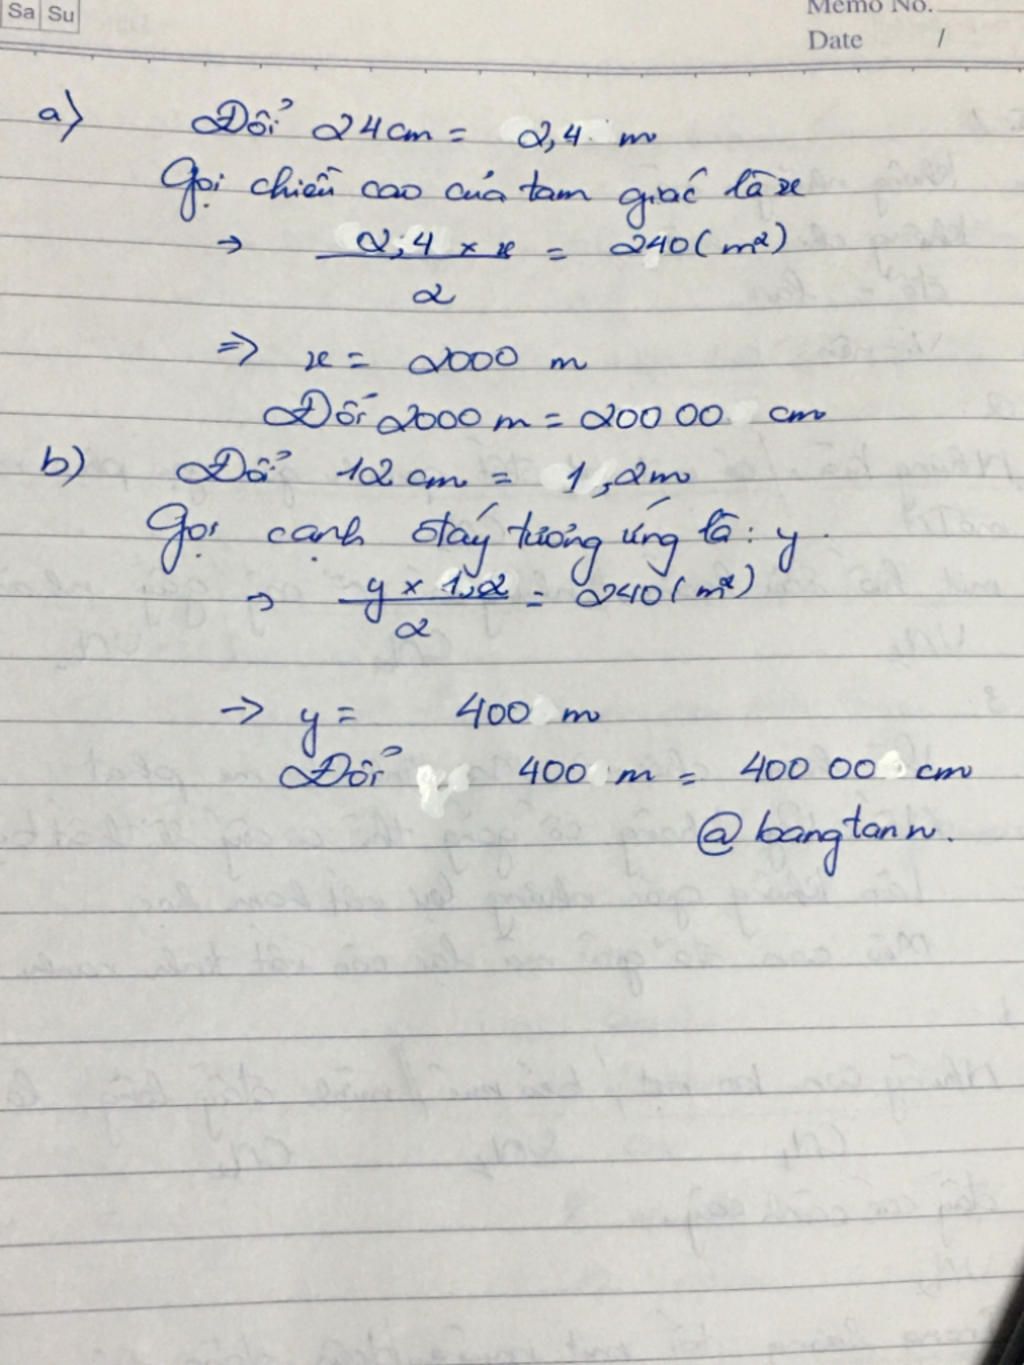 Sa Su
Memo No.
Date /
a) Đổi 24cm = 2,4 m
Gọi chiều cao của tam giác là x
→ 2,4 × x / 2 = 240 (m²)
⇒ x = 2000 m
Đổi 2000 m = 200 00 cm
b) Đổi 12 cm = 1,2m
Gọi cạnh đáy tương ứng là: y.
→ y × 1,2 / 2 = 240 (m²)
→ y = 400 m
Đổi 400 m = 400 00 cm
@bangtann.